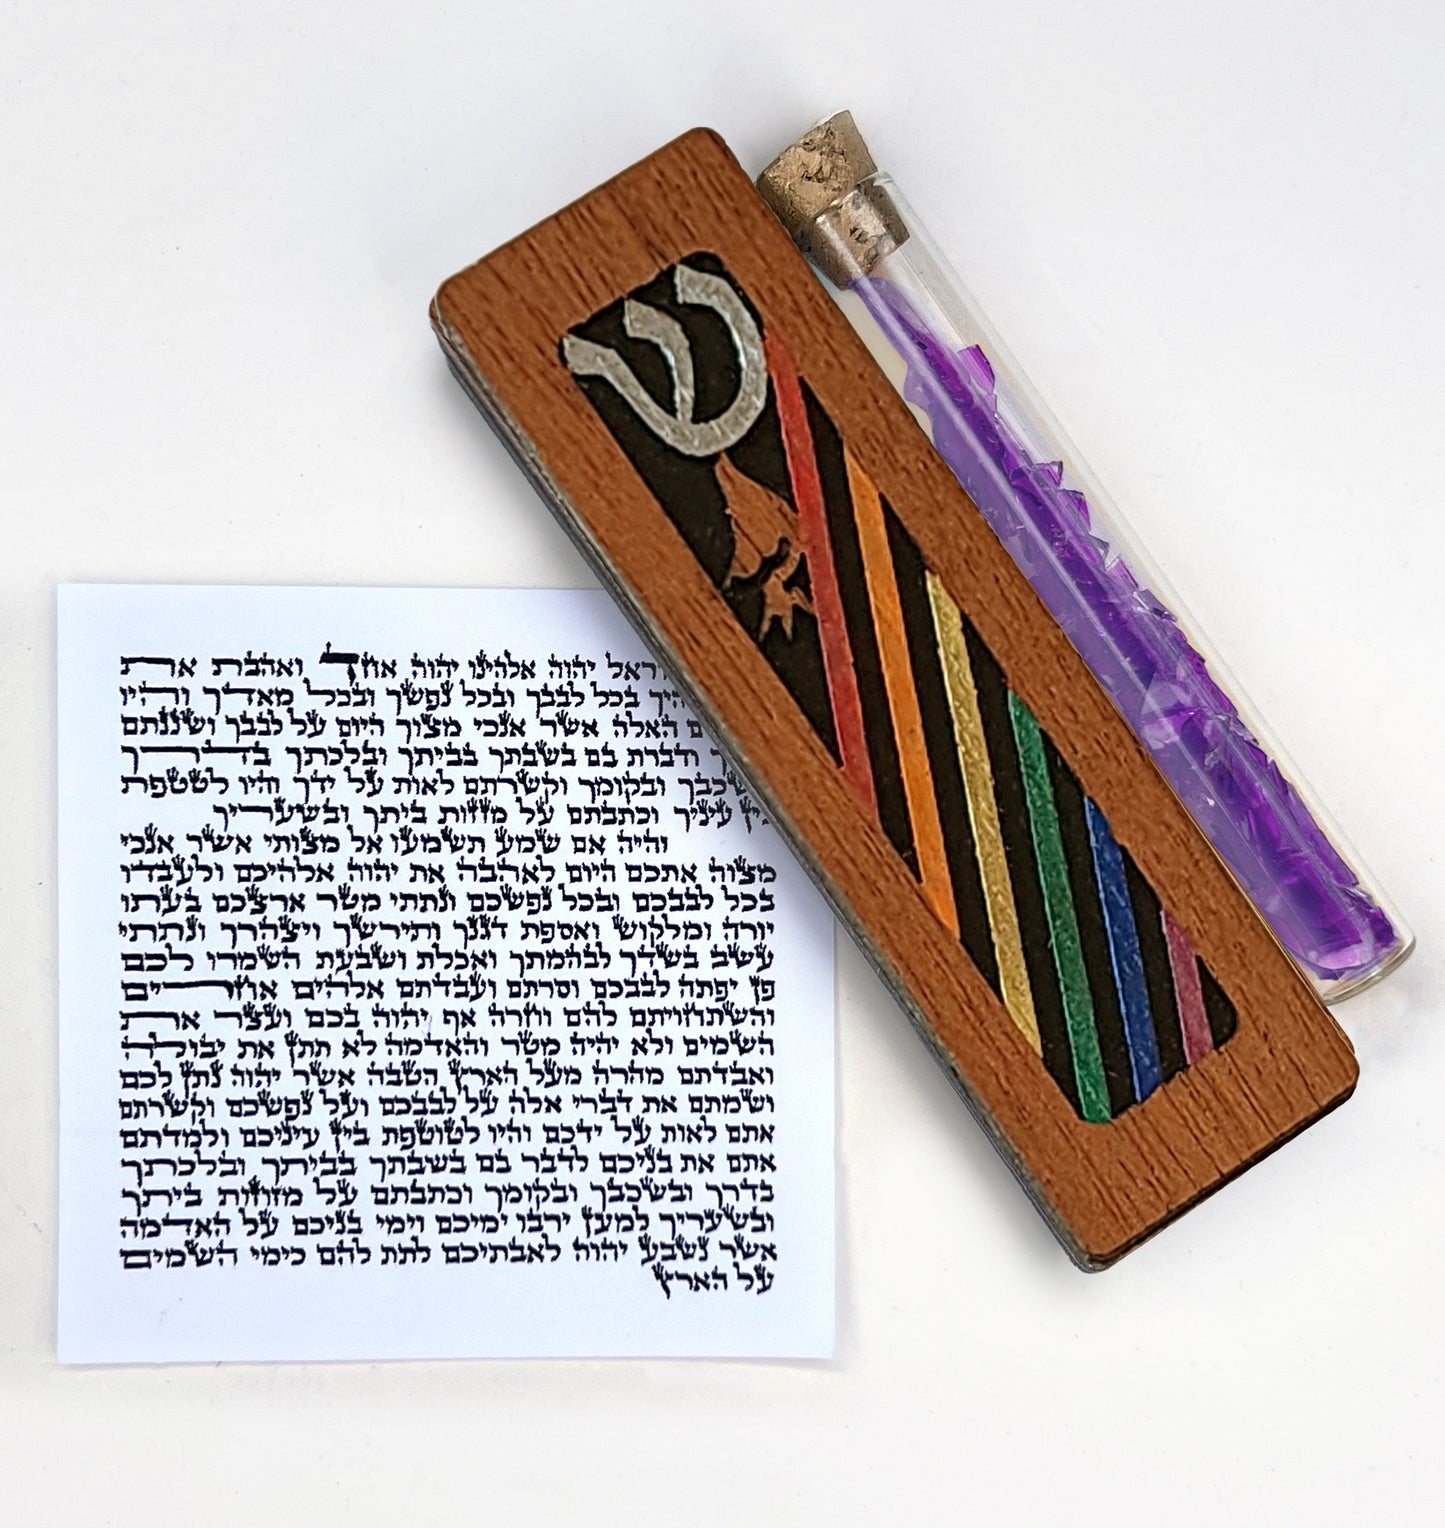 ש
ראל יהוה אלהינו יהוה אחד ואהבת את
היך בכל לבבך ובכל נפשך ובכל מאדך והיו
ם האלה אשר אנכי מצוך היום על לבבך ושננתם
ודברת בם בשבתך בביתך ובלכתך בדרך
שכבך ובקומך וקשרתם לאות על ידך והיו לטטפת
בין עיניך וכתבתם על מזזות ביתך ובשעריך
והיה אם שמע תשמעו אל מצותי אשר אנכי
מצוה אתכם היום לאהבה את יהוה אלהיכם ולעבדו
בכל לבבכם ובכל נפשכם ונתתי מטר ארצכם בעתו
יורה ומלקוש ואספת דגנך ותירשך ויצהרך ונתתי
עשב בשדך לבהמתך ואכלת ושבעת השמרו לכם
פן יפתה לבבכם וסרתם ועבדתם אלהים אחרים
והשתחויתם להם וחרה אף יהוה בכם ועצר את
השמים ולא יהיה מטר והאדמה לא תתן את יבולה
ואבדתם מהרה מעל הארץ הטבה אשר יהוה נתן לכם
ושמתם את דברי אלה על לבבכם ועל נפשכם וקשרתם
אתם לאות על ידכם והיו לטוטפת בין עיניכם ולמדתם
אתם את בניכם לדבר בם בשבתך בביתך ובלכתך
בדרך ובשכבך ובקומך וכתבתם על מזוזות ביתך
ובשעריך למען ירבו ימיכם וימי בניכם על האדמה
אשר נשבע יהוה לאבתיכם לתת להם כימי השמים
על הארץ